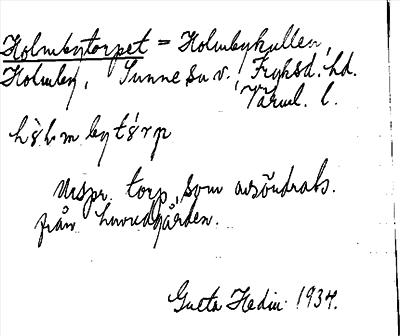 Holmbytorpet = Holmbykullen,
Holmby, Sunne sn v., Fryksd. hd.
Värml. l.
hòlmbytårp
Urspr. torp, som avsöndrats
från huvudgården.
Greta Hedin 1934.